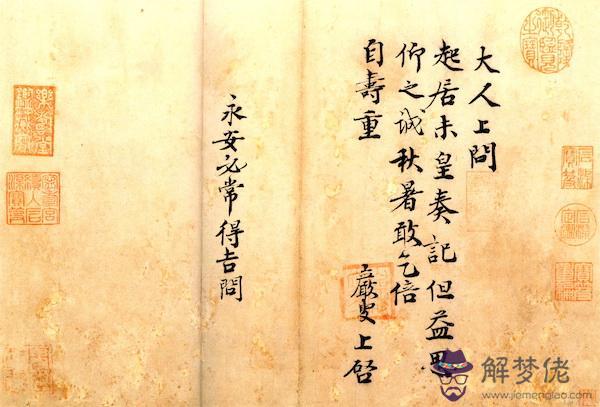 大人上問
起居未皇奏記但益思
仰之誠秋暑敢乞倍
自壽重 嚴叟上啓
永安必常得吉問
解梦佬
www.jiemenglao.com